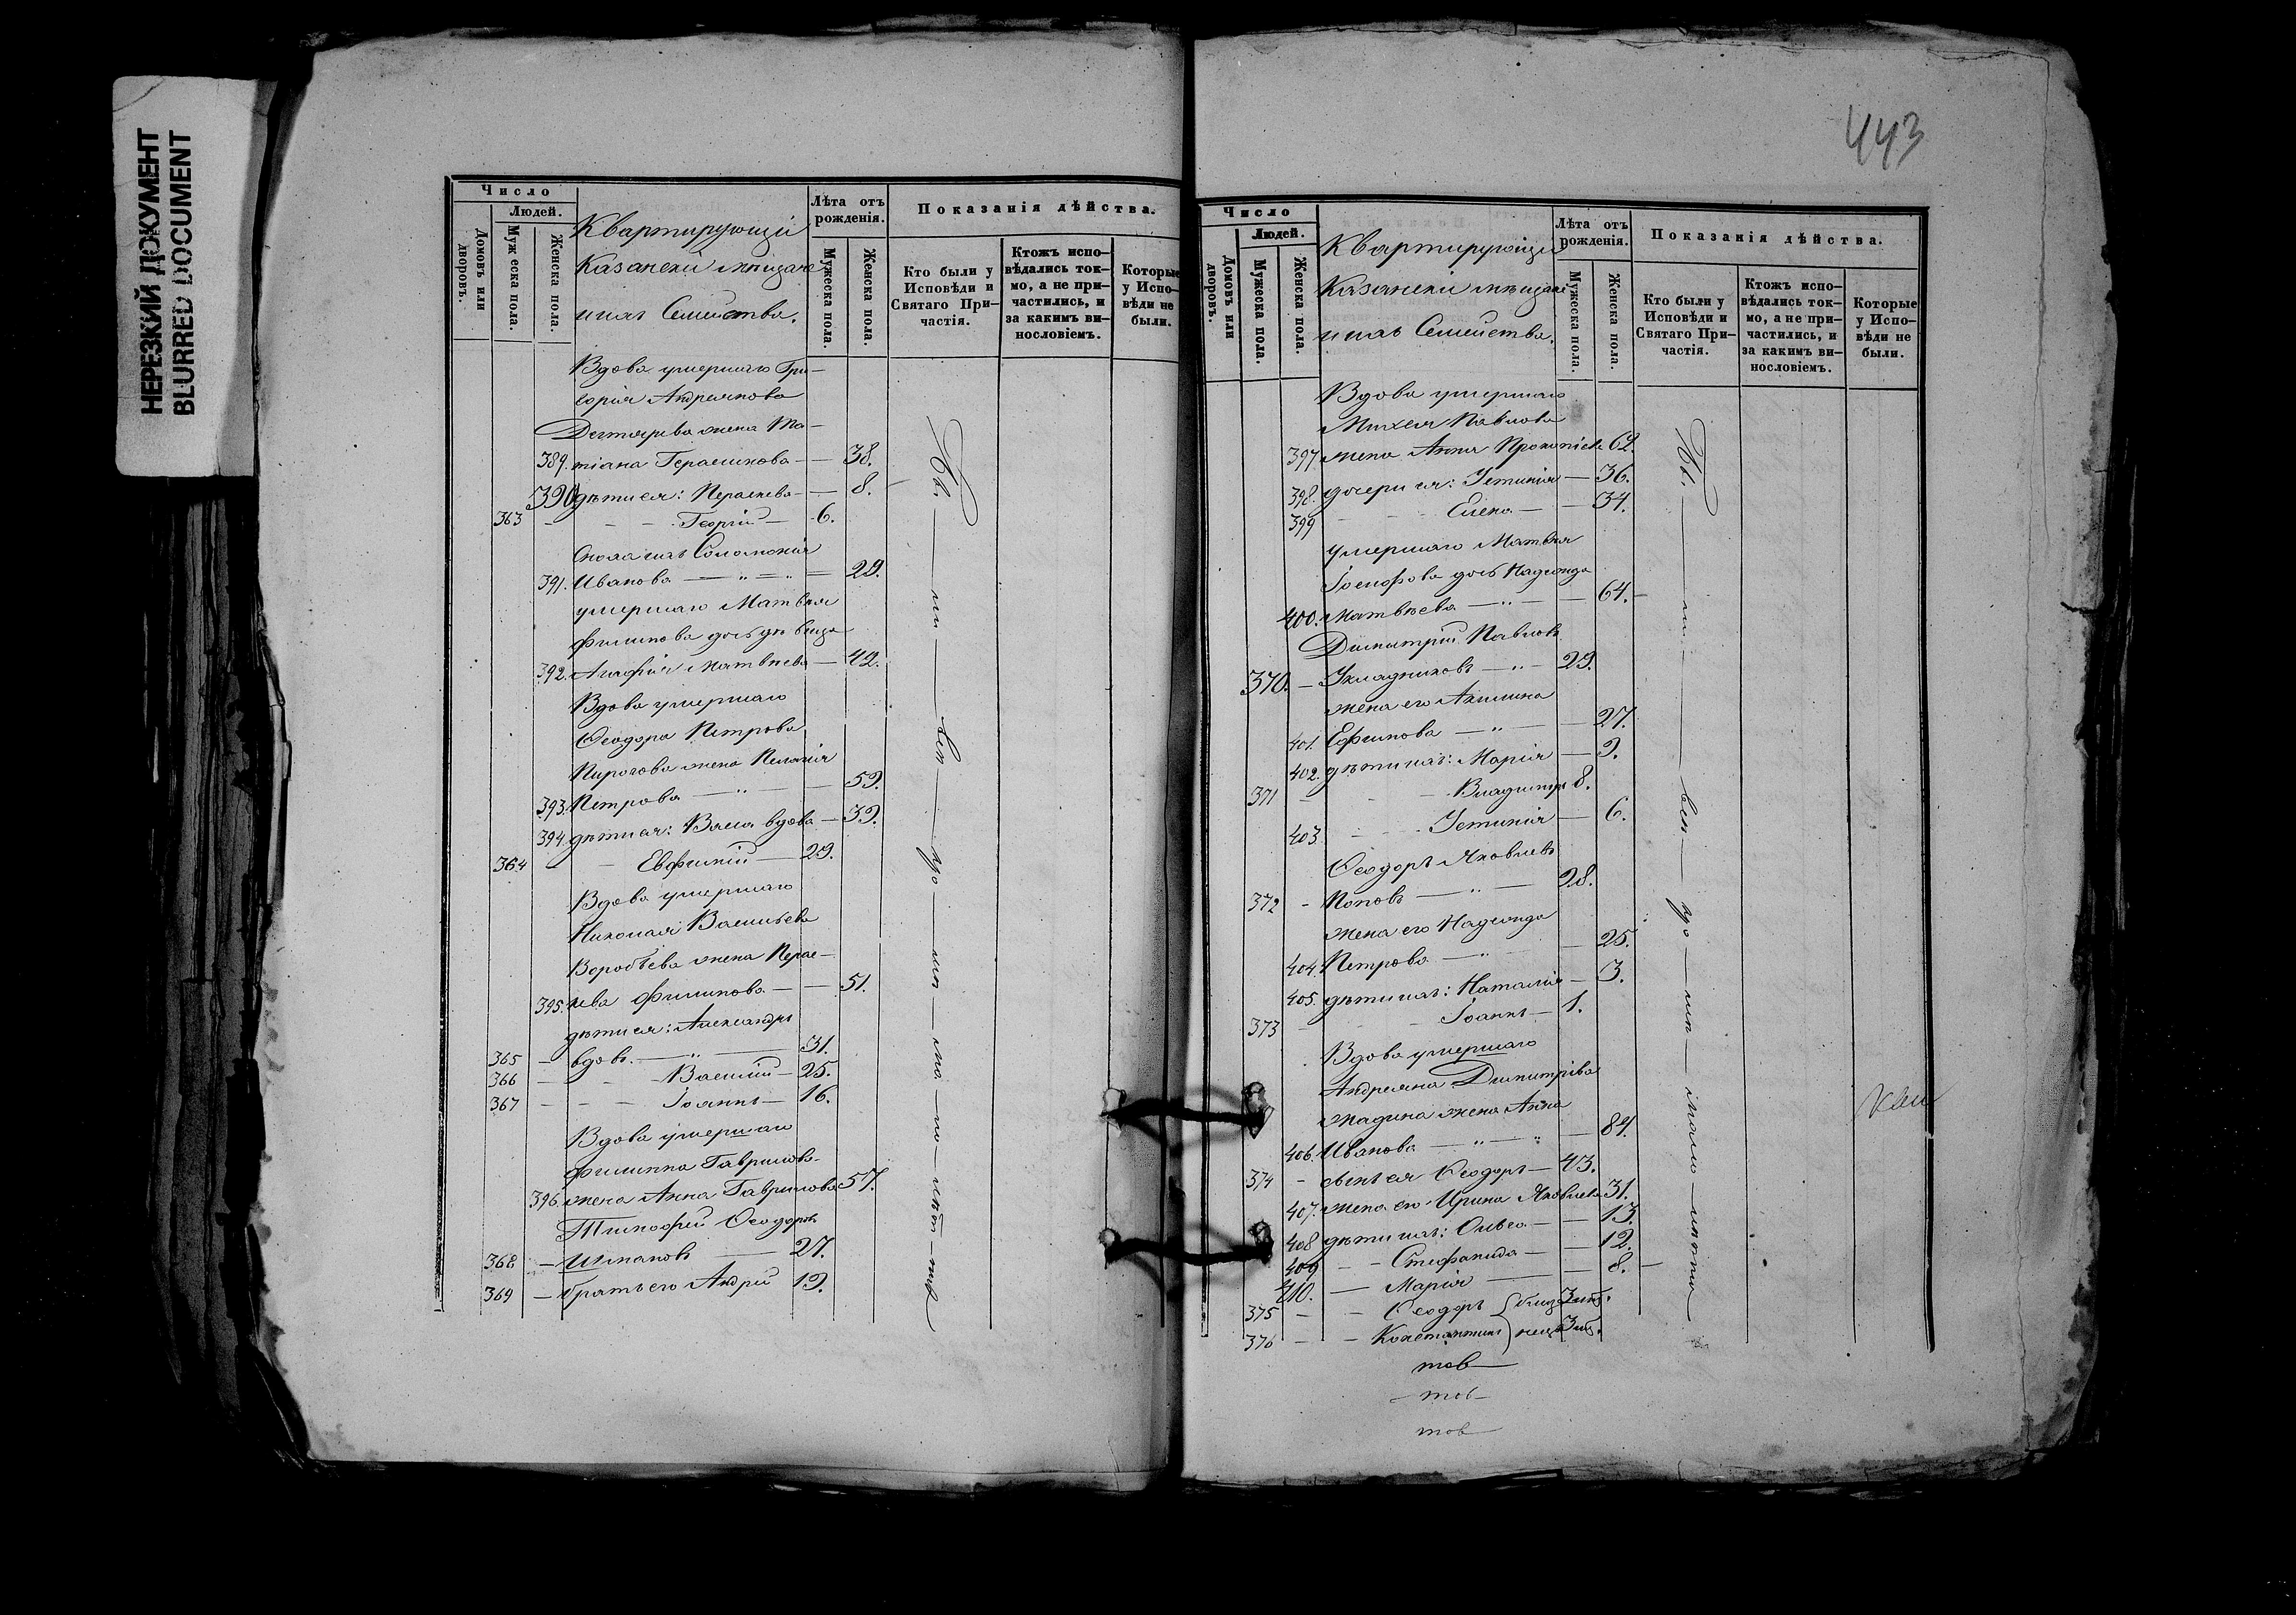 НЕРЕЗКИЙ ДОКУМЕНТ
BLURRED DOCUMENT
Число
Людей.
Домовъ или дворовъ.
Мужеска пола.
Женска пола.
Квартирующіи
Казанскіи мѣщане
и ихъ Семейства.
Лѣта отъ рожденія.
Мужеска пола.
Женска пола.
Показанія дѣйства.
Кто были у Исповѣди и Святаго Причастія.
Ктожъ исповѣдались токмо, а не причастились, и за какимъ винословіемъ.
Которые у Исповѣди не были.
Вдова умершаго Гри-
горія Андреянова
Дегтярева жена Та-
389. тіана Герасимова — 38.
390 дѣти ея: Параскева — 8.
363 — Георгій — 6.
Сноха ихъ Соломонія
391. Иванова — 29.
умершаго Матвѣя
Филипова дочь дѣвица
392. Агафія Матвѣева — 42.
Вдова умершаго
Ѳеодора Петрова
Пирогова жена Пелагія
393. Петрова — 59.
394. дѣти ея: Васса вдова — 39.
364 — Евфимій — 29.
Вдова умершаго
Николая Васильева
Воробьева жена Парас-
395. кева Филипова — 51.
дѣти ея: Александръ
365 — вдовъ — 31.
366 — Василій — 25.
367 — Іоаннъ — 16.
Вдова умершаго
Филиппа Гаврилова
396. жена Анна Гаврилова 57.
Тимофей Ѳеодоровъ
368 — Шмаковъ — 27.
369 — братъ его Андрей 19.
443
Число
Людей.
Домовъ или дворовъ.
Мужеска пола.
Женска пола.
Квартирующіи
Казанскіи мѣщане
и ихъ Семейства.
Лѣта отъ рожденія.
Мужеска пола.
Женска пола.
Показанія дѣйства.
Кто были у Исповѣди и Святаго Причастія.
Ктожъ исповѣдались токмо, а не причастились, и за какимъ винословіемъ.
Которые у Исповѣди не были.
Вдова умершаго
Михея Павлова
397 жена Анна Прокопіева 62.
398. дочери ея: Устинія — 36.
399 — Елена — 34.
умершаго Матвѣя
Іосифова дочь Надежда
400. Матвѣева — 64.
Димитрій Павловъ
370. — Укладниковъ — 29.
жена его Акилина
401. Ефимова — 27.
402. дѣти ихъ: Марія — 9.
371 — Владиміръ 8.
403. — Устинія — 6.
Ѳеодоръ Яковлевъ
372 — Поповъ — 28.
жена его Надежда
404. Петрова — 25.
405. дѣти ихъ: Наталія — 3.
373 — Іоаннъ — 1.
Вдова умершаго
Андреяна Димитріева
жена Анна
406. Иванова — 84.
374 — сынъ ея Ѳеодоръ — 43.
407. жена его Ирина Яковлева 31.
408 дѣти ихъ: Ольга — 13.
409 — Стефанида — 12.
410. — Марія — 8.
375 — Ѳеодоръ
376 — Константинъ
тов
тов
тов